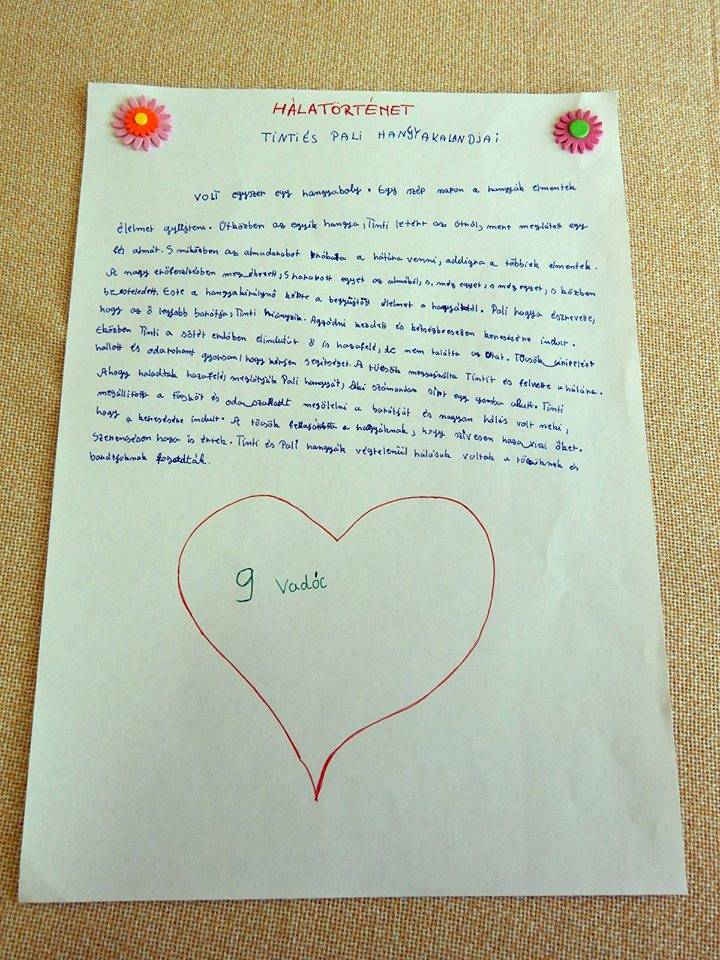 HÁLATÖRTÉNET
TINTI ÉS PALI HANGYAKALANDJAI
VOLT egyszer egy hangyaboly. Egy szép napon a hangyák elmentek
élelmet gyűjteni. Útközben az egyik hangya, Tinti letért az útról, mert meglátott egy
kis almát. S miközben az almadarabot próbálta a hátára venni, addigra a többiek elmentek.
A nagy erőfeszítésben megéhezett, s harapott egyet az almából, s még egyet, s még egyet, s közben
besötétedett. Este a hangyakirálynő kérte a begyűjtött élelmet a hangyáktól. Pali hangya észrevette,
hogy az ő legjobb barátja, Tinti hiányzik. Aggódni kezdett és kétségbeesetten keresésére indult.
Eközben Tinti a sötét erdőben elindult ő is hazafelé, de nem találta az utat. Tücsök ciripelést
hallott és odarohant gyorsan, hogy kérjen segítséget. A tücsök megsajnálta Tintit és felvette a hátára.
Ahogy haladtak hazafelé, meglátják Pali hangyát, aki szomorúan sírt egy gomba alatt. Tinti
megállította a tücsköt és oda szaladt megölelni a barátját és nagyon hálás volt neki,
hogy a keresésére indult. A tücsök felajánlotta a hangyáknak, hogy szívesen haza viszi őket.
Szerencsésen haza is értek. Tinti és Pali hangyák végtelenül hálásak voltak a tücsöknek és
barátjuknak fogadták.
9 Vadóc